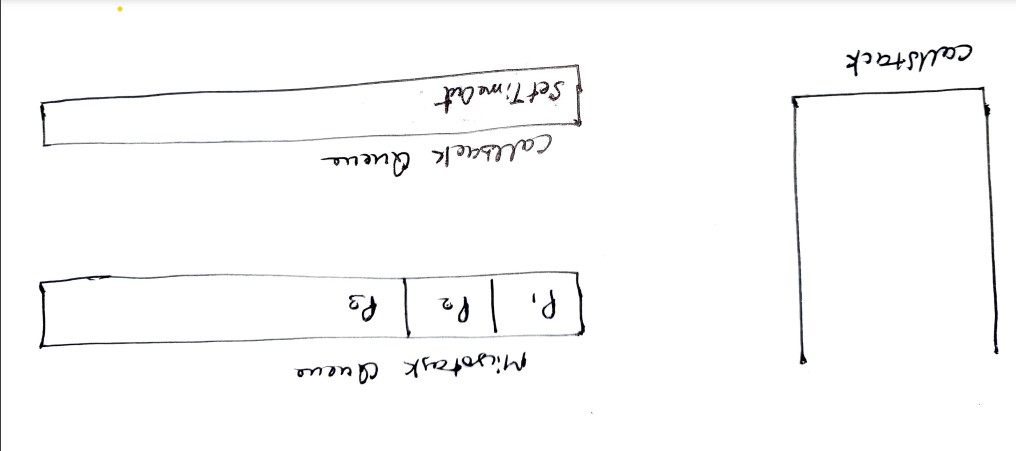 Microtask Queue
P1 P2 P3
Callback Queue
SetTimeOut
Callstack